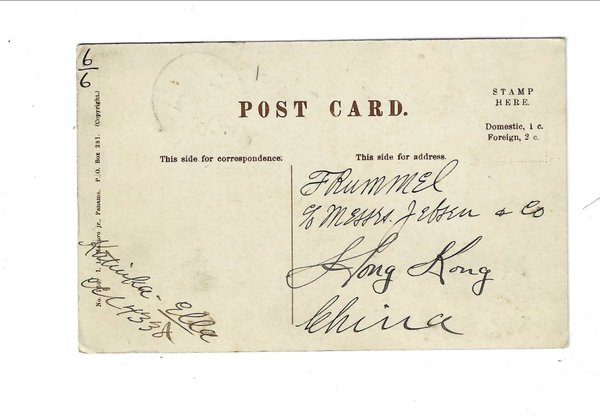 6
6
POST CARD.
STAMP
HERE.
Domestic, 1 c.
Foreign, 2 c.
This side for correspondence.
This side for address.
F Rummel
c/o Messrs. Jebsen & Co
Hong Kong
China
jr., Panama. P.O. Box 281. (Copyright.)
No.
Ella